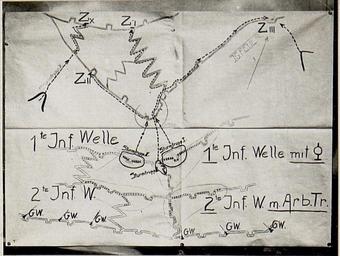 Zx
Z I
Z II
Z III
1te Inf Welle
1te Inf. Welle mit
2te Inf. W.
2te Inf. W. m. Arb. Tr.
GW.
GW.
GW.
GW.
GW.
GW.